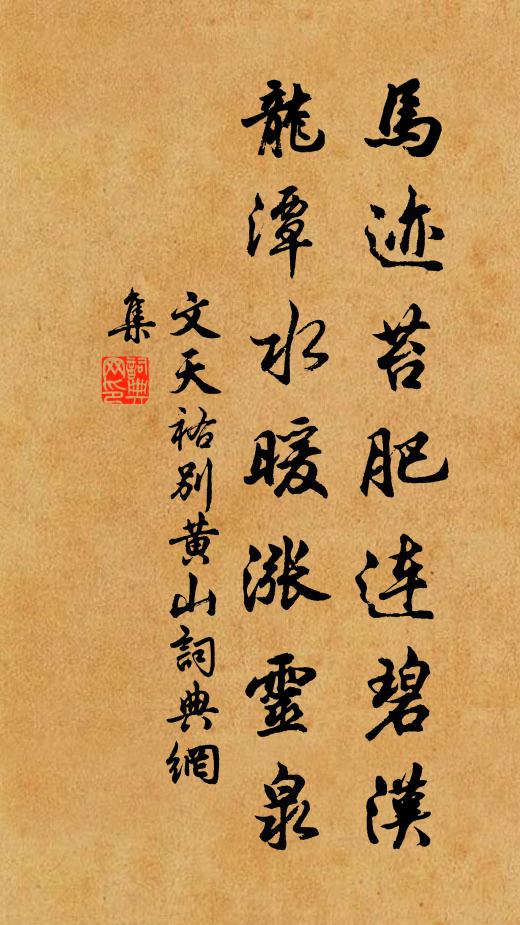 馬迹苔肥連碧漢
龍潭水暖漲靈泉
文天祐別黄山詞典網
集
詞典
网印